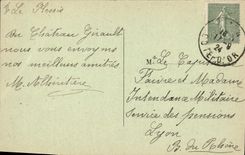 Le Plessis
du Château Girault
nous vous envoyons
nos meilleures amitiés
M.
M. Le Capit
Faivre et Madame
Intendance Militaire
Service des pensions
Lyon
B. du Rhône